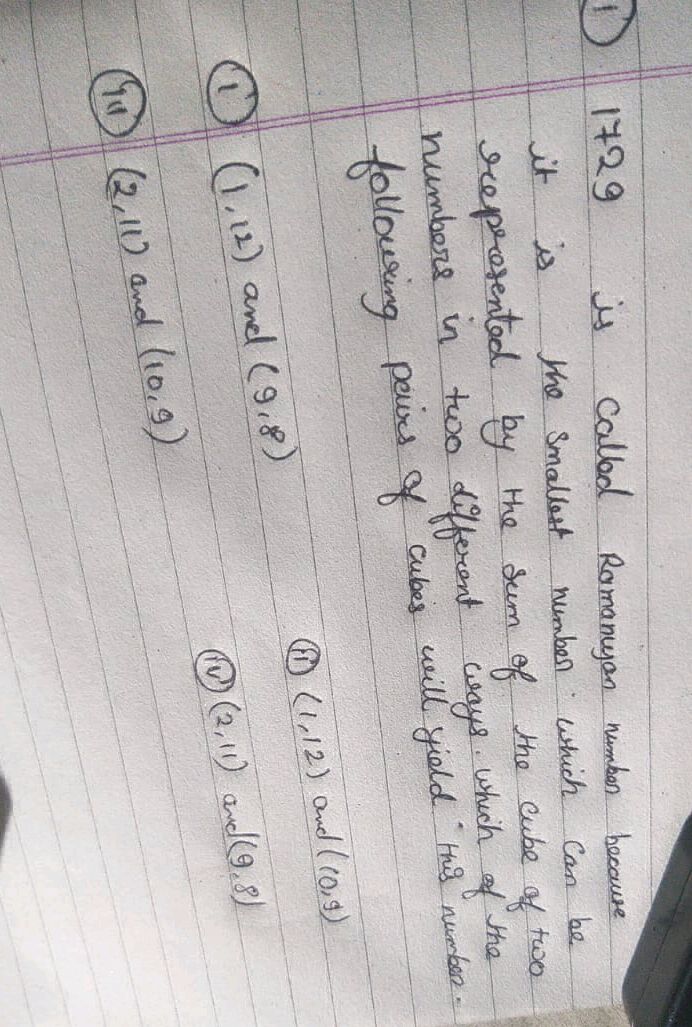 ① 1729 is called Ramanujan number because
it is the smallest number which can be
represented by the sum of the cube of two
numbers in two different ways. which of the
following pairs of cubes will yield this number.
ⓘ (1,12) and (9,8) ⓘⓘ (1,12) and (10,9)
ⓘⓘⓘ (2,11) and (10,9) ⓘⓥ (2,11) and (9,8)